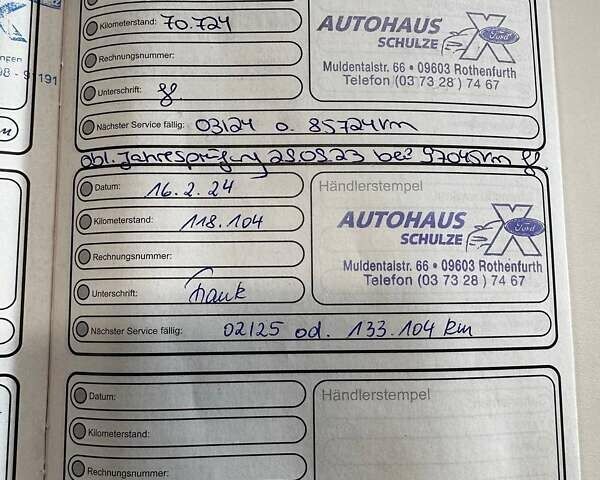 Kilometerstand: 70.724
Rechnungsnummer:
Unterschrift:
AUTOHAUS
SCHULZE
Ford
Muldentalstr. 66 • 09603 Rothenfurth
Telefon (03 73 28) 74 67
98 - 91191
Nächster Service fällig: 03/24 o. 85724km
obl. Jahresprüfung 29.03.23 bei 97045km
Datum: 16.2.24
Kilometerstand: 118.104
Rechnungsnummer:
Unterschrift: Frank
Händlerstempel
AUTOHAUS
SCHULZE
Ford
Muldentalstr. 66 • 09603 Rothenfurth
Telefon (03 73 28) 74 67
Nächster Service fällig: 02/25 od. 133.104 km
Datum:
Kilometerstand:
Rechnungsnummer:
Händlerstempel